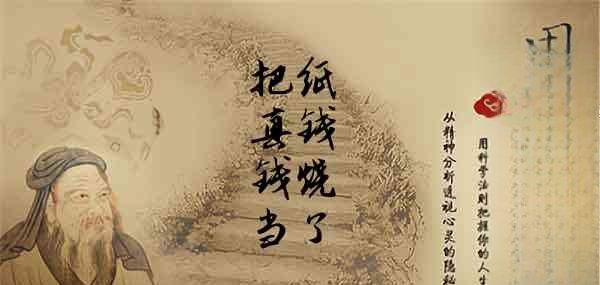 把真钱当
纸钱烧了
用科学法则把握你的人生
从精神分析透视心灵的隐秘